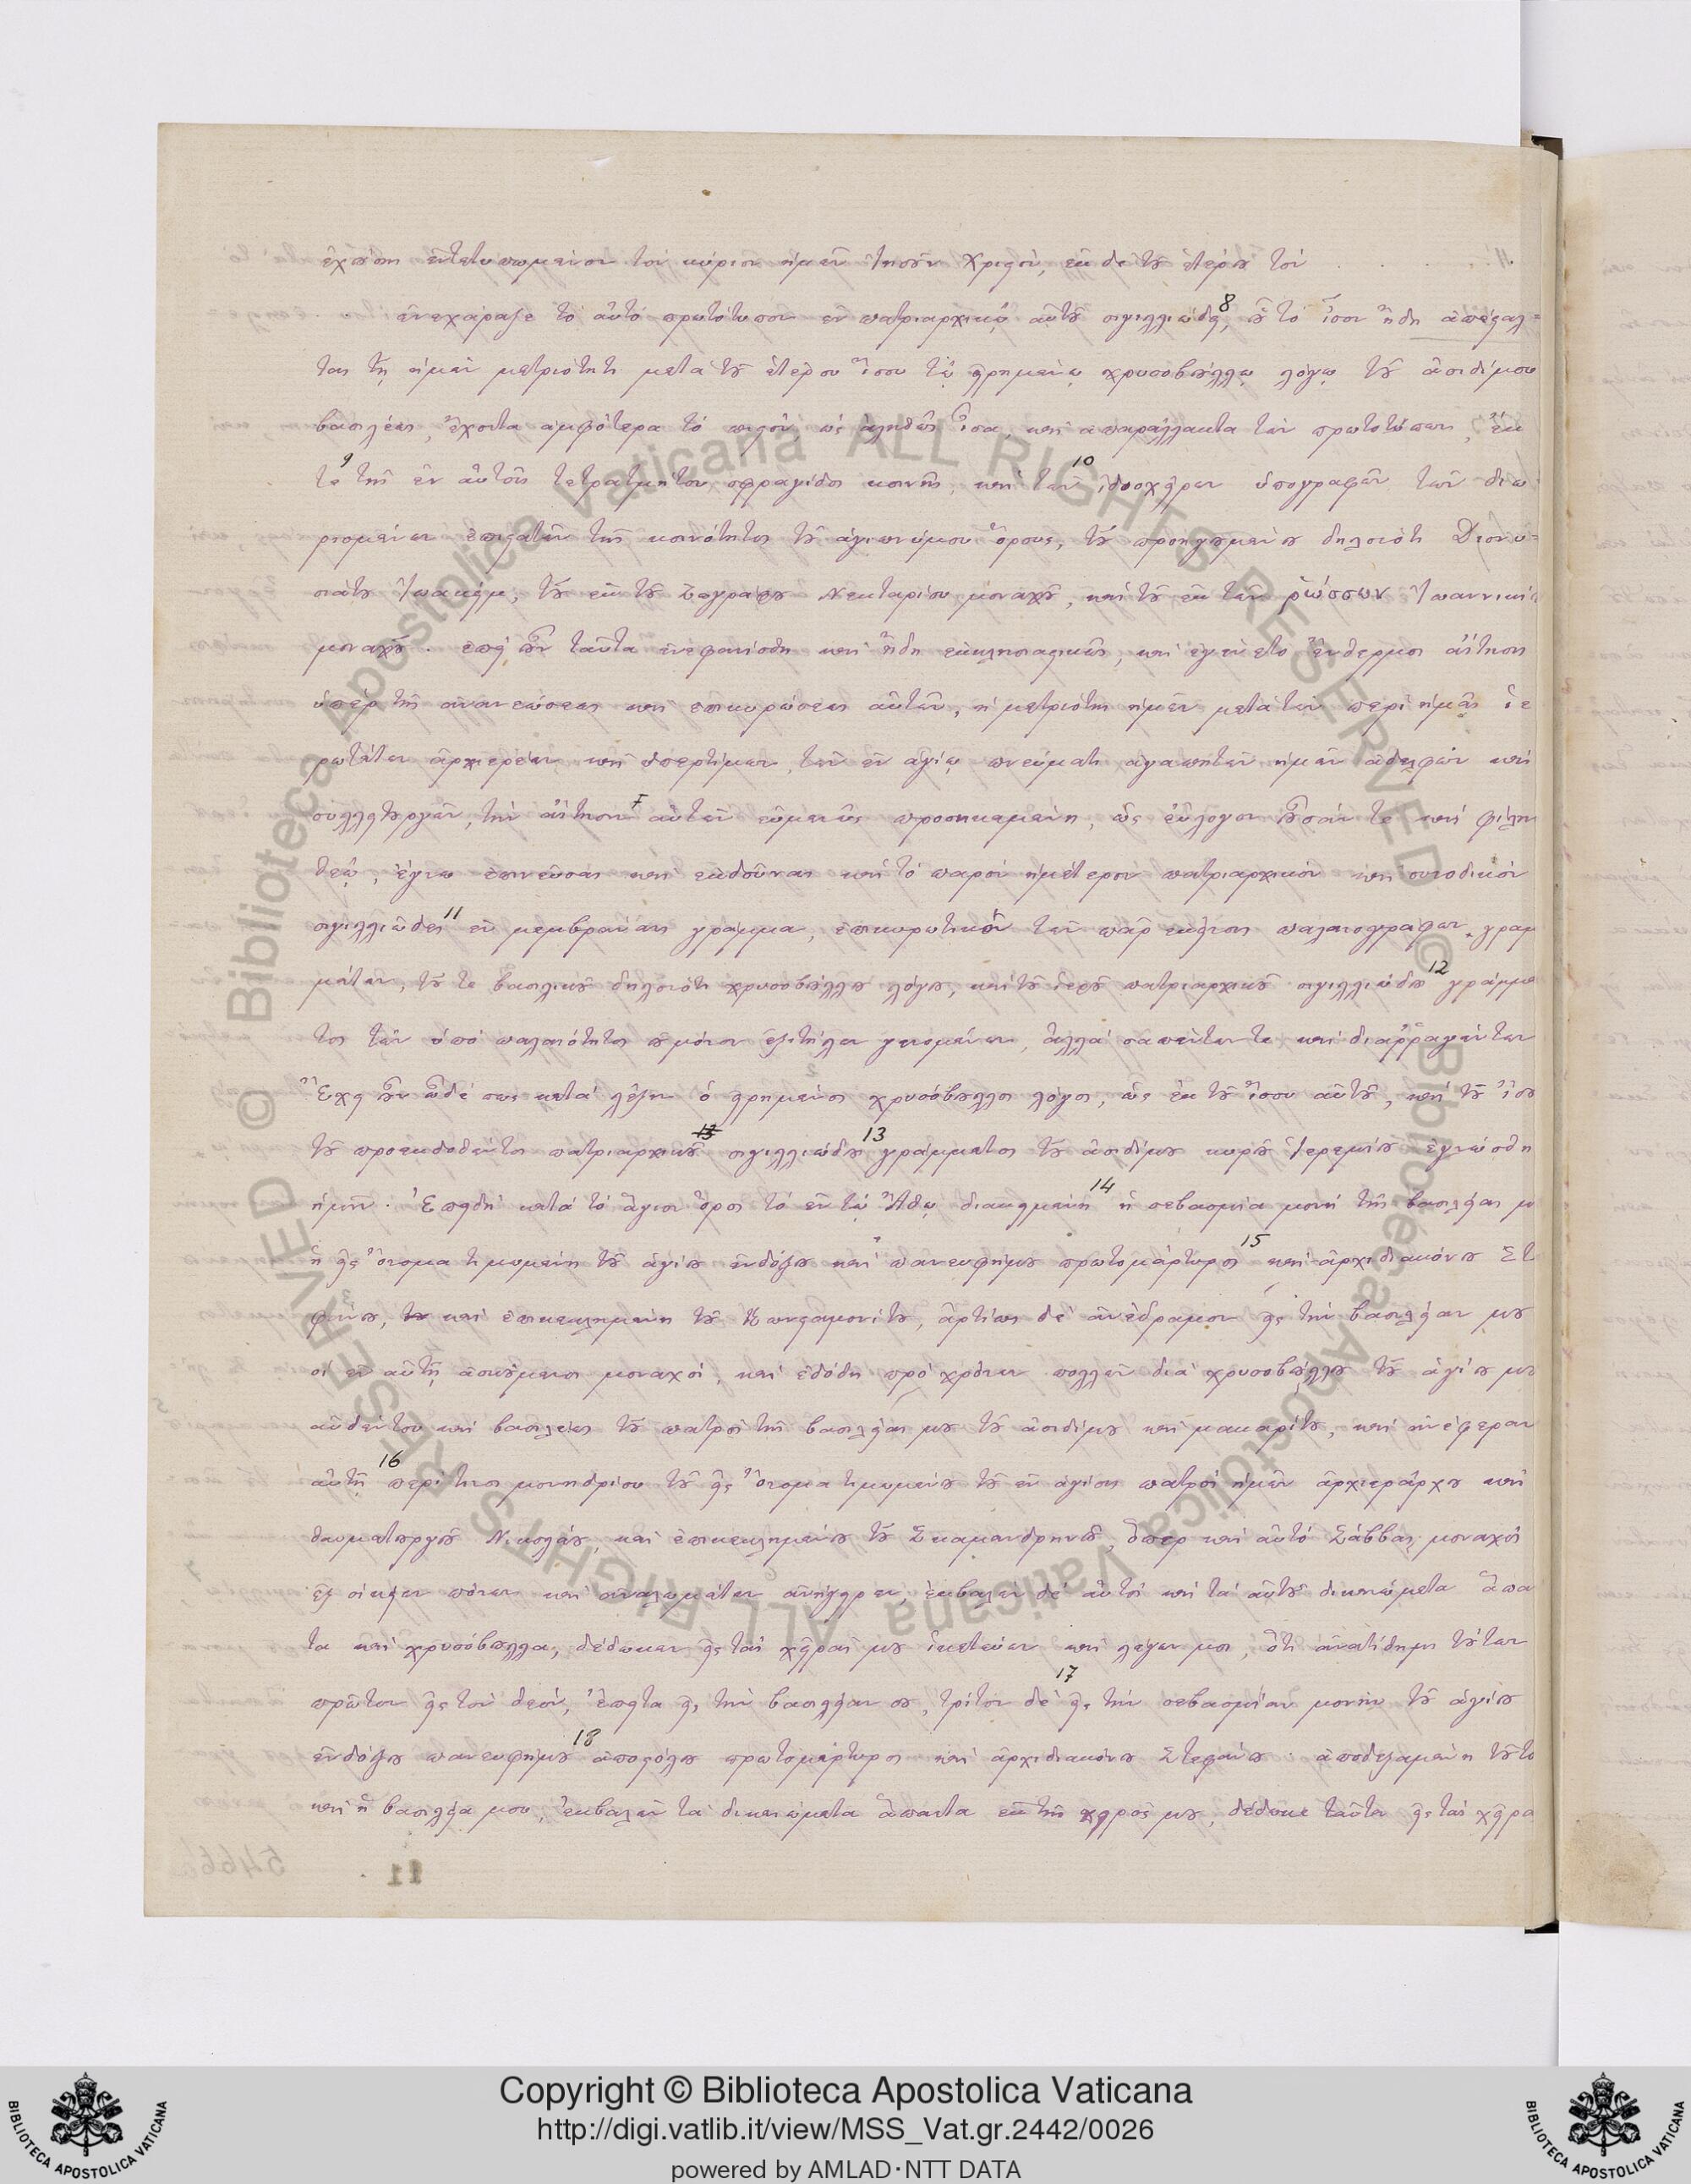 ἐχούση ἐντετυπωμένον τὸν κύριον ἡμῶν Ἰησοῦν Χριστὸν, ἐκ δὲ τοῦ ἑτέρου τὸν . . . . .
ἐνεχάραξε τὸ αὐτὸ πρωτότυπον ἐν πατριαρχικῷ αὐτοῦ σιγιλλιώδει 8, οὗ τὸ ἴσον ἤδη ἀπέσταλ=
ται τῇ ἡμῶν μετριότητι μετὰ τοῦ ἑτέρου ἴσου τῷ εἰρημένῳ χρυσοβούλλῳ λόγῳ τοῦ ἀοιδίμου
βασιλέως, ἔχοντα ἀμφότερα τὸ πιστὸν ὡς ἀληθῶς ἴσα, καὶ ἀπαράλλακτα τῶν πρωτοτύπων, ἔκ
τε 9 τῆς ἐν αὐτοῖς τετρατμήτου σφραγίδος κοινῆς, καὶ τῶν 10 ἰδιοχείρων ὑπογραφῶν τῶν διω
ρισμένων ἐπιστατῶν τῆς κοινότητος τοῦ ἁγιωνύμου ὄρους, τοῦ προηγουμένου δηλονότι Διονυ=
σιάτου Ἰωακεὶμ, τοῦ ἐκ τοῦ Ζωγράφου Νεκταρίου μοναχοῦ, καὶ τοῦ ἐκ τῶν ῥώσσων Ἰωαννικίου
μοναχοῦ. ἐπεὶ οὖν ταῦτα ἐνεφανίσθη καὶ ἤδη ἐκκλησιαστικῶς, καὶ ἐγένετο ἔνθερμος αἴτησις
ὑπὲρ τῆς ἀνανεώσεως καὶ ἐπικυρώσεως αὐτῶν, ἡ μετριότης ἡμῶν μετὰ τῶν περὶ ἡμᾶς ἱε
ρωτάτων ἀρχιερέων καὶ ὑπερτίμων, τῶν ἐν ἁγίῳ πνεύματι ἀγαπητῶν ἡμῶν ἀδελφῶν καὶ
συλλειτουργῶν, τὴν αἴτησιν αὐτῶν εὐμενῶς προσηκαμένη, ὡς εὔλογον οὖσάν τε καὶ φίλην
θεῷ, ἔγνω ἐπινεῦσαι καὶ ἐκδοῦναι καὶ τὸ παρὸν ἡμέτερον πατριαρχικὸν καὶ συνοδικὸν
σιγιλλιῶδες 11 ἐν μεμβράναις γράμμα, ἐπικυρωτικὸν τῶν παρ᾽ ἐκείνοις παλαιογράφων γραμ
μάτων, τοῦ τε βασιλικοῦ δηλονότι χρυσοβούλλου λόγου, καὶ τοῦ ἱεροῦ πατριαρχικοῦ σιγιλλιώδου 12 γράμμα
τος τῶν ὑπὸ παλαιότητος οὐ μόνον ἐξιτήλων γενομένων, ἀλλὰ σαπέντων τε καὶ διαρραγέντων
Ἔχει οὖν ὧδέ πως κατὰ λέξιν ὁ εἰρημένος χρυσόβουλλος λόγος, ὡς ἐκ τοῦ ἴσου αὐτοῦ, καὶ τοῦ ἴσου
τοῦ προεκδοθέντος πατριαρχικοῦ σιγιλλιώδους 13 γράμματος τοῦ ἀοιδίμου κυροῦ Ἰερεμίου ἐγνώσθη
ἡμῖν. Ἐπειδὴ κατὰ τὸ ἅγιον ὄρος τὸ ἐν τῷ Ἄθῳ διακειμένη 14 ἡ σεβασμία μονὴ τῆς βασιλείας μου
ἡ εἰς ὄνομα τιμωμένη τοῦ ἁγίου ἐνδόξου καὶ πανευφήμου πρωτομάρτυρος 15 καὶ ἀρχιδιακόνου Στε
φάνου, καὶ ἐπικεκλημένη τοῦ Κωνσταμονίτου, ἀρτίως δὲ ἀνέδραμον εἰς τὴν βασιλείαν μου
οἱ ἐν αὐτῇ ἀσκούμενοι μοναχοὶ, καὶ ἐδόθη πρὸ χρόνων πολλῶν διὰ χρυσοβούλλου τοῦ ἁγίου μου
αὐθέντου καὶ βασιλέως τοῦ πατρὸς τῆς βασιλείας μου τοῦ ἀοιδίμου καὶ μακαρίτου, καὶ ἀνέφεραν
αὐτῇ 16 περί τινος μονηδρίου τοῦ εἰς ὄνομα τιμωμένου τοῦ ἐν ἁγίοις πατρὸς ἡμῶν ἀρχιεράρχου καὶ
θαυματουργοῦ Νικολάου, καὶ ἐπικεκλημένου τοῦ Σκαμανδρηνοῦ, ὅπερ καὶ αὐτὸ Σάββας μοναχὸς
ἐξ οἰκείων πόνων καὶ ἀναλωμάτων ἀνήγειρεν, ἐκβαλὼν δὲ αὐτὸς καὶ τὰ αὐτοῦ δικαιώματα ἅπαν
τα καὶ χρυσόβουλλα, δέδωκεν εἰς τὰς χεῖράς μου ἱκετεύων καὶ λέγων μοι, ὅτι ἀνατίθημι τοῦτον
πρῶτον εἰς τὸν θεὸν, ἔπειτα εἰς τὴν βασιλείαν σου, τρίτον δὲ 17 εἰς τὴν σεβασμίαν μονὴν τοῦ ἁγίου
ἐνδόξου πανευφήμου 18 ἀποστόλου πρωτομάρτυρος καὶ ἀρχιδιακόνου Στεφάνου. ἀποδεξαμένη τοῦτο
καὶ ἡ βασιλεία μου, ἐκβαλὼν τὰ δικαιώματα ἅπαντα ἐκ τῆς χειρός μου, δέδωκε ταῦτα εἰς τὰς χεῖρα
11
Copyright © Biblioteca Apostolica Vaticana
http://digi.vatlib.it/view/MSS_Vat.gr.2442/0026
powered by AMLAD·NTT DATA